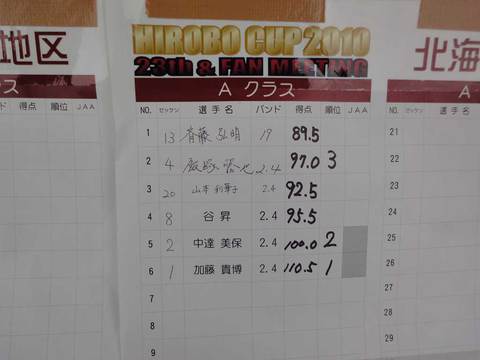 地区
HIROBO CUP 2010
北海
23th & FAN MEETING
A クラス
A
ンド 得点 順位 JAA
NO. ゼッケン 選手名 バンド 得点 順位 JAA
NO.
1 13 斉藤 弘明 19 89.5
2 4 飯塚 2.4 97.0 3
3 20 山本 2.4 92.5
4 8 谷 昇 2.4 95.5
5 2 中達 美保 2.4 100.0 2
6 1 加藤 貴博 2.4 110.5 1
7
8
9
21
22
23
24
25
26
27
28
29